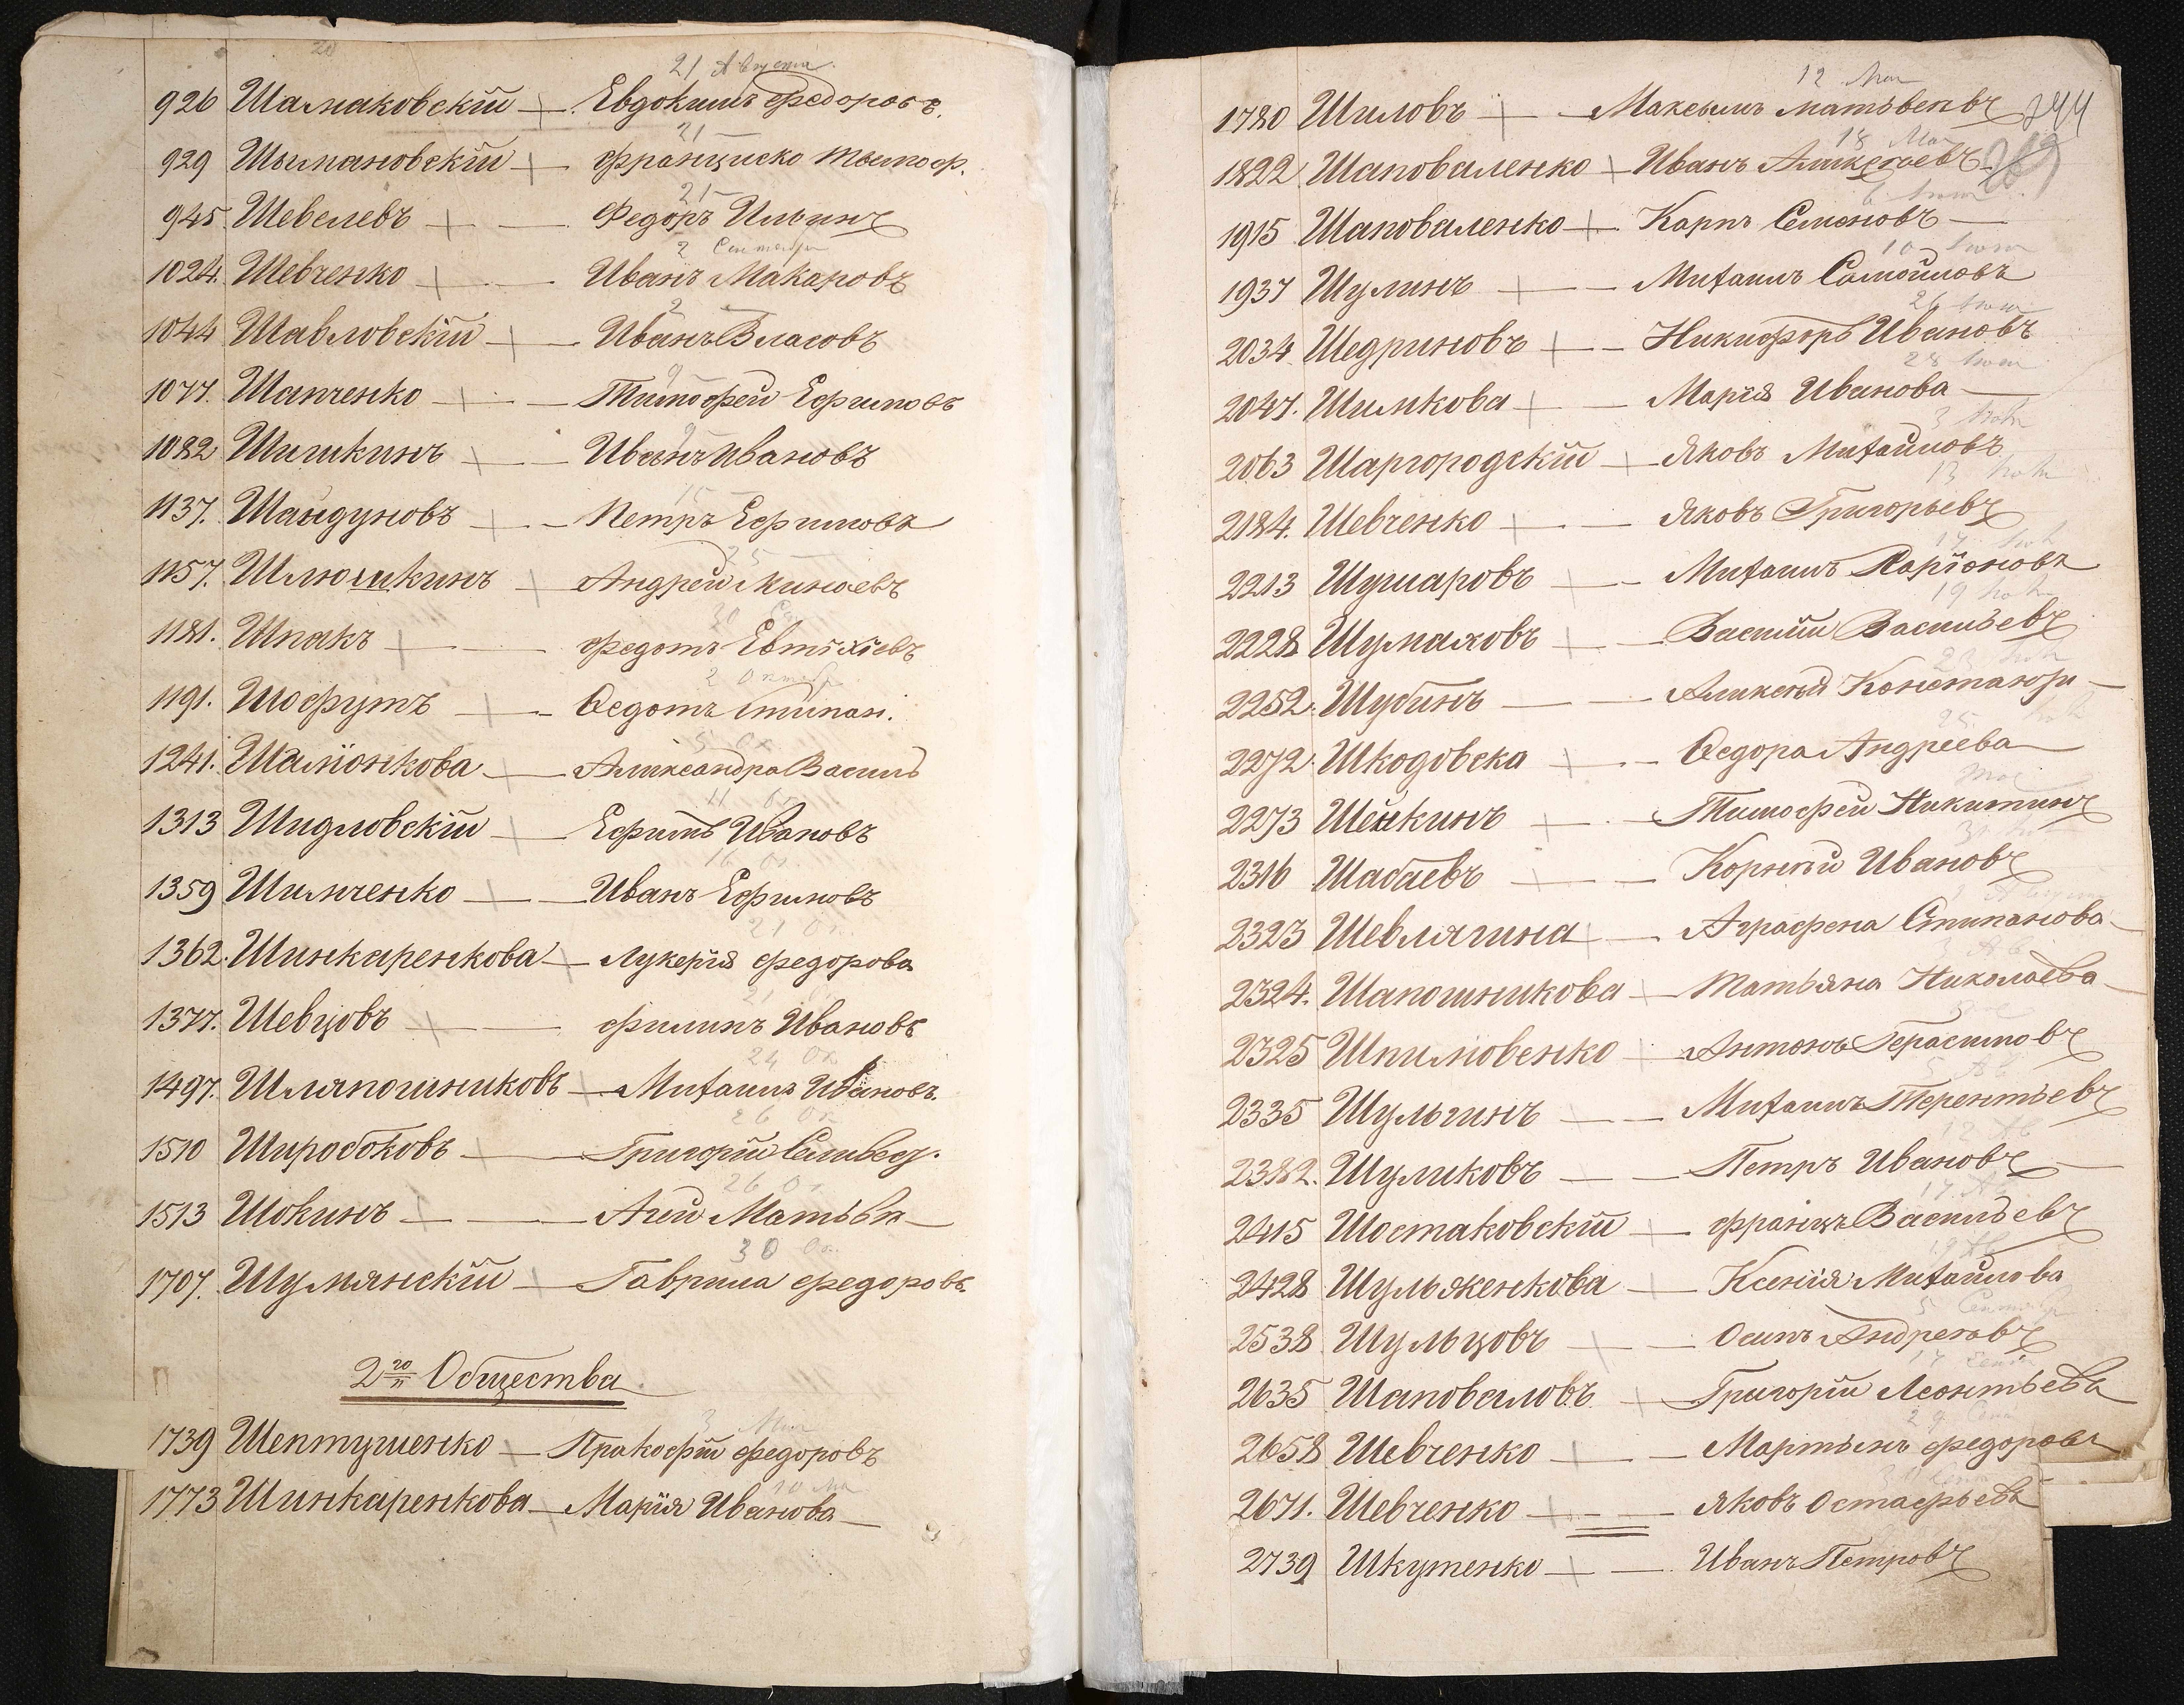 20
21 Августа
926 Шамаковскій — Евдокимъ Федоровъ.
21 —
929 Шымановскій — Франциско Тымоф.
21 —
945 Шевелевъ — Федоръ Ильинъ
2 Сентября
1024. Шевченко — Иванъ Макаровъ
2 —
1044 Шавловскій — Иванъ Власовъ
9 —
1077. Шапченко — Тимофей Ефимовъ
9 —
1082 Шишкинъ — Иванъ Ивановъ
15 —
1137. Шандуновъ — Петръ Ефимовъ
25 —
1157. Шлюшкинъ — Андрей Минаевъ
30 Се
1181. Шпакъ — Федотъ Евтіхіевъ
2 Октяб
1191. Шофутъ — Ѳедотъ Степан.
5 Ок
1241. Шалїонкова — Александра Василь
11 Ок
1313 Шидловскій — Ефимъ Ивановъ
16 Ок.
1359 Шимченко — Иванъ Ефимовъ
21 Ок.
1362. Шинкаренкова — Лукерія Федорова
21
1377. Шевцовъ — Филипъ Ивановъ
24 Ок
1497. Шляпошниковъ — Михаилъ Ивановъ.
26 Ок
1510 Широбоковъ — Григорій Сильвес.
26 Ок
1513 Шокинъ — Агей Матвѣе —
30 Ок.
1707. Шумянскій — Гаврила Федоровъ
2го Общества
3 Мая
1739 Шептушенко — Пракофій Федоровъ
10 Ма
1773 Шинкаренкова — Марія Иванова —
12 Мая
1780 Шиловъ — Максымъ Матвѣевъ 244
18 Ма
1822. Шаповаленко — Иванъ Алексѣевъ
6 Іюня
1915 Шаповаленко — Карпъ Семеновъ —
10 Іюня
1937 Шулинъ — Михаилъ Самойловъ
26 Іюня
2034. Щедриновъ — Никифоръ Ивановъ
28 Іюня
2047. Шимкова — Марія Иванова —
3 Іюля
2063 Шаргородскій — Яковъ Михайловъ
13 Іюля
2184. Шевченко — Яковъ Григорьевъ
17 Іюл
2213 Шушаровъ — Михаилъ Ларіоновъ
19 Іюл
2228 Шумаковъ — Василій Васильевъ
23 Іюл
2252. Шубинъ — Алексѣй Константи —
25 Іюл
2272. Шкодовска — Ѳедора Андреева —
2273 Шейкинъ — Тимофей Никитинъ
2316 Шабаевъ — Корнѣй Ивановъ
Августа
2323 Шевлягина — Аграфена Степанова —
2324. Шапошникова — Татьяна Николаева —
2325 Шпиловенко — Антонъ Герасимовъ
2335 Шульгинъ — Михаилъ Терентьевъ
12 Ав
2382. Шуликовъ — Петръ Ивановъ —
17 А
2415 Шостаковскій — Францъ Васильевъ
19 Ав
2428 Шульженкова — Ксенія Михайлова
5 Сентябр
2538 Шульцовъ — Осипъ Андреевъ
17 Сент
2635 Шаповаловъ — Григорій Леонтьевъ
29 Сен
2658 Шевченко — Мартынъ Федоровъ
2671. Шевченко — Яковъ Остафьевъ
2739 Шкутенко — Иванъ Петровъ